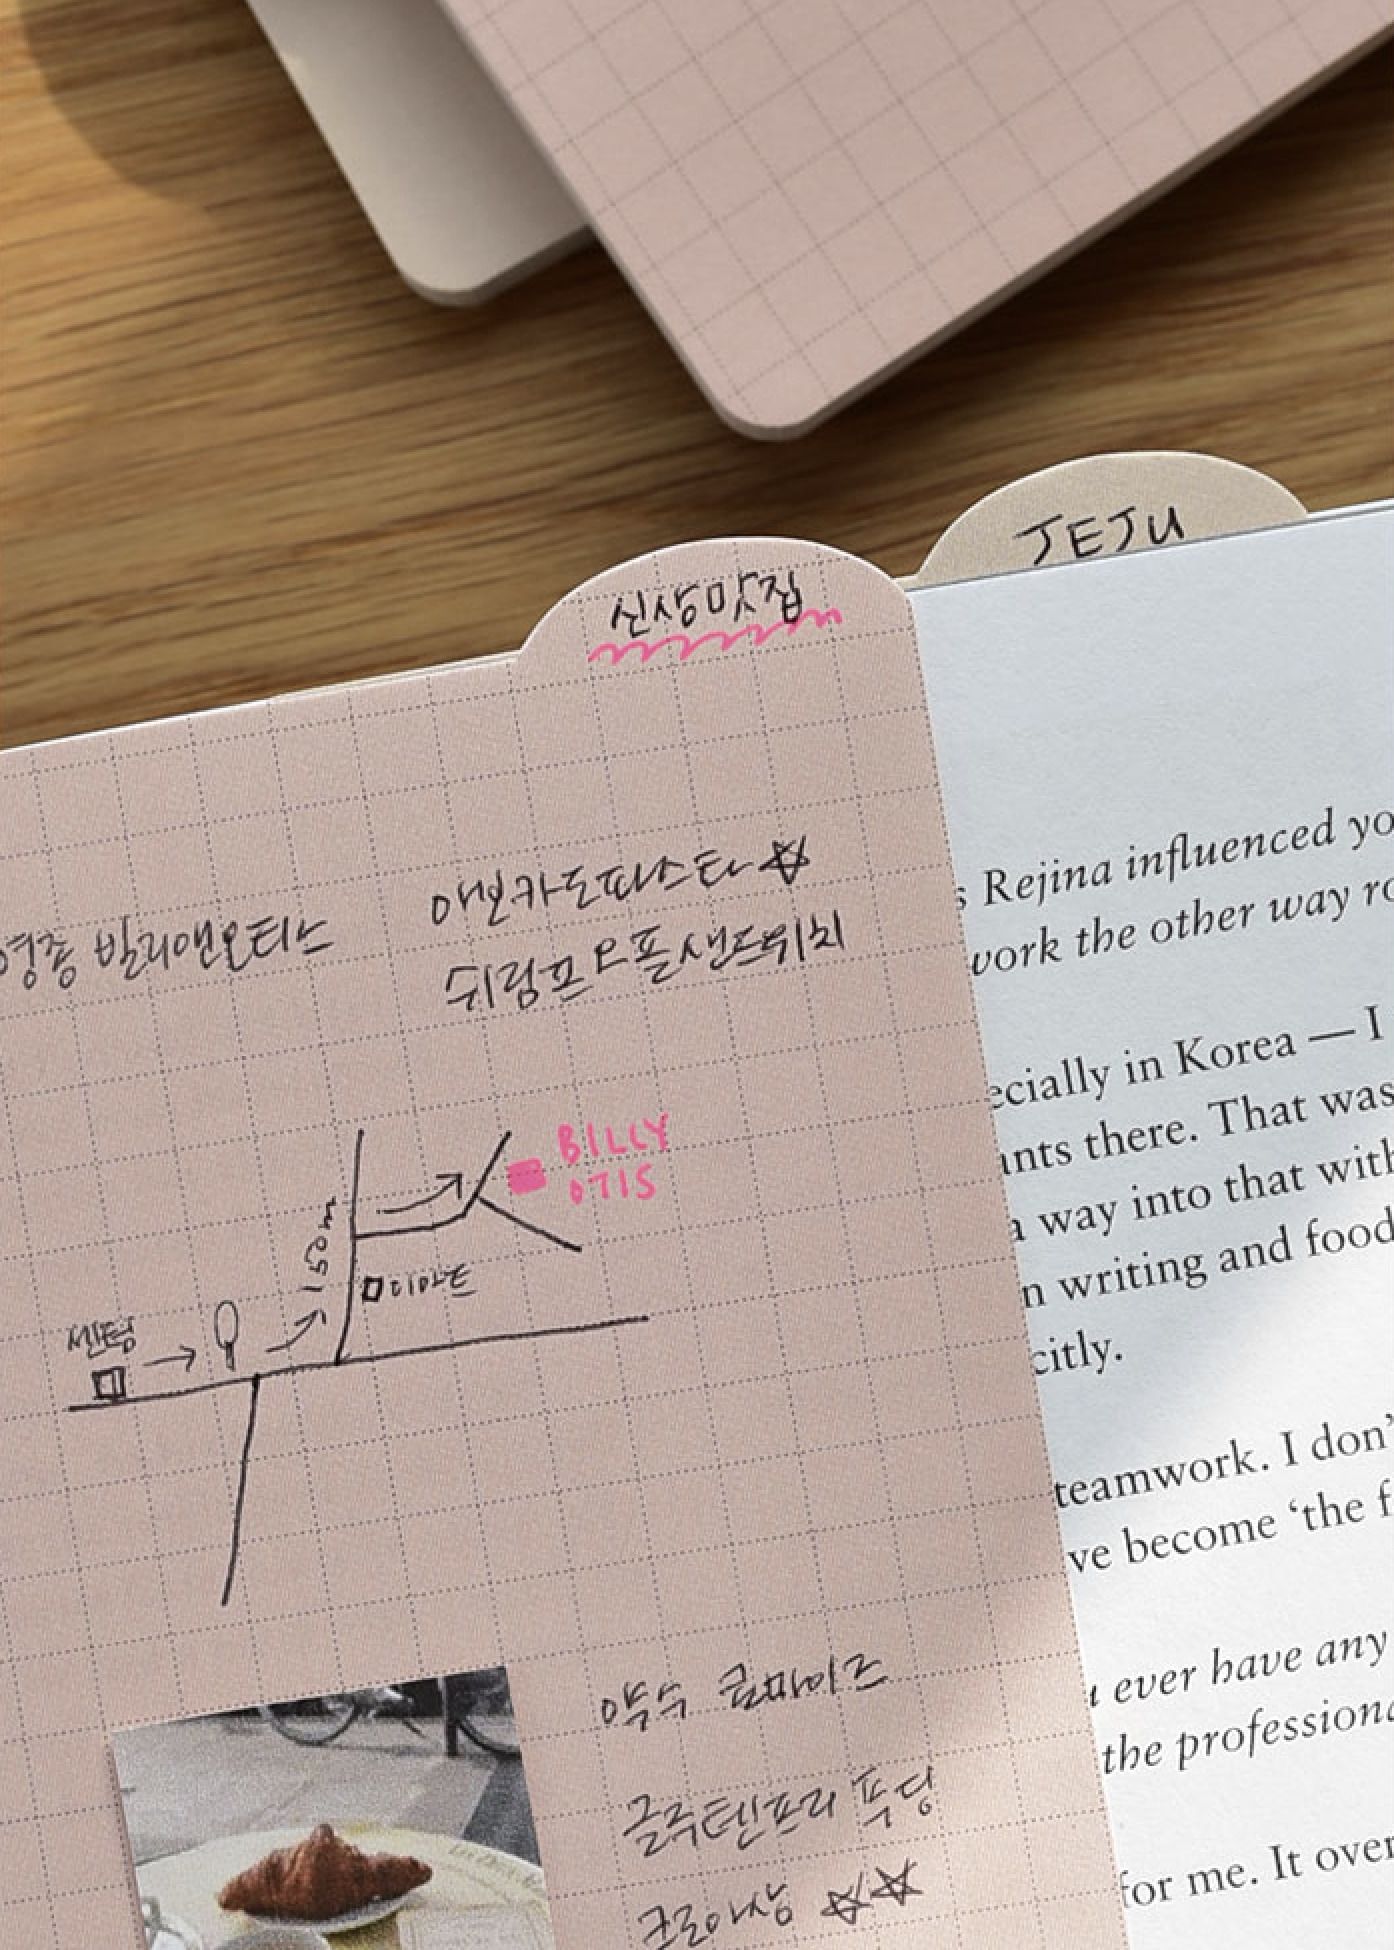 JEJU
신상맛집
영종 빌리앤오티스
아보카도파스타
쉬림프오픈샌드위치
BILLY
OTIS
150m
이마트
센텀
약수
글루텐프리 푸딩
크로아상
Rejina influenced yo
work the other way ro
ecially in Korea — I
ants there. That was
a way into that with
n writing and food
citly.
teamwork. I don’
ve become ‘the f
ever have any
the professiona
for me. It over